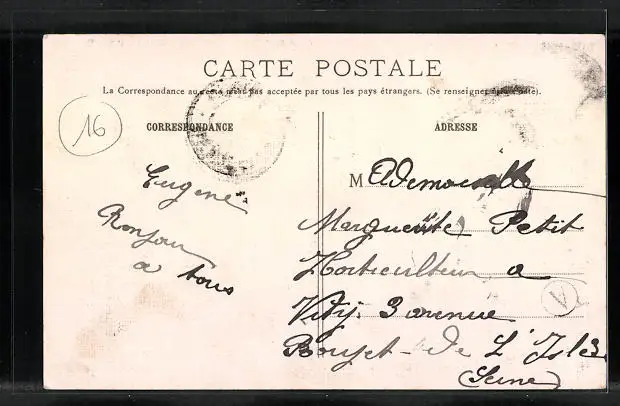 CARTE POSTALE
La Correspondance au recto n'est pas acceptée par tous les pays étrangers. (Se renseigner à la Poste).
16
CORRESPONDANCE
Eugene
Bonjour
a tous
ADRESSE
Mademoiselle
Marguerite Petit
Horticulteur a
Vitry 3 avenue
Rouget-de L'Isle
(Seine)
V